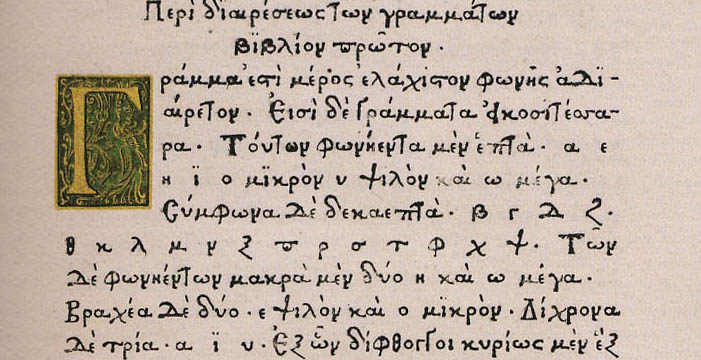 Περὶ δϊαιρέσεως τῶν γραμμάτων
βϊβλίον πρῶτον.
Γράμμα ἐστὶ μέρος ἐλάχιστον φωνῆς ἀδϊ-
άιρετον. Εἰσὶ δὲ γράμματα ἐικοσιτέσσα-
ρα. Τούτων φωνήεντα μὲν ἑπτὰ. α ε
η ϊ ο μϊκρὸν υ ψιλὸν καὶ ω μέγα.
Σύμφωνα δὲ δεκαεπτὰ. β γ δ ζ.
θ κ λ μ ν ξ π ρ σ τ φ χ ψ. Τῶν
δὲ φωνηέντων μακρὰ μὲν δύο η καὶ ω μέγα.
Βραχέα δὲ δύο. ε ψιλὸν καὶ ο μϊκρὸν. Δίχρονα
δὲ τρία. α ϊ υ. Ἐξ ὧν δίφθογγοι κυρίως μὲν ἓξ